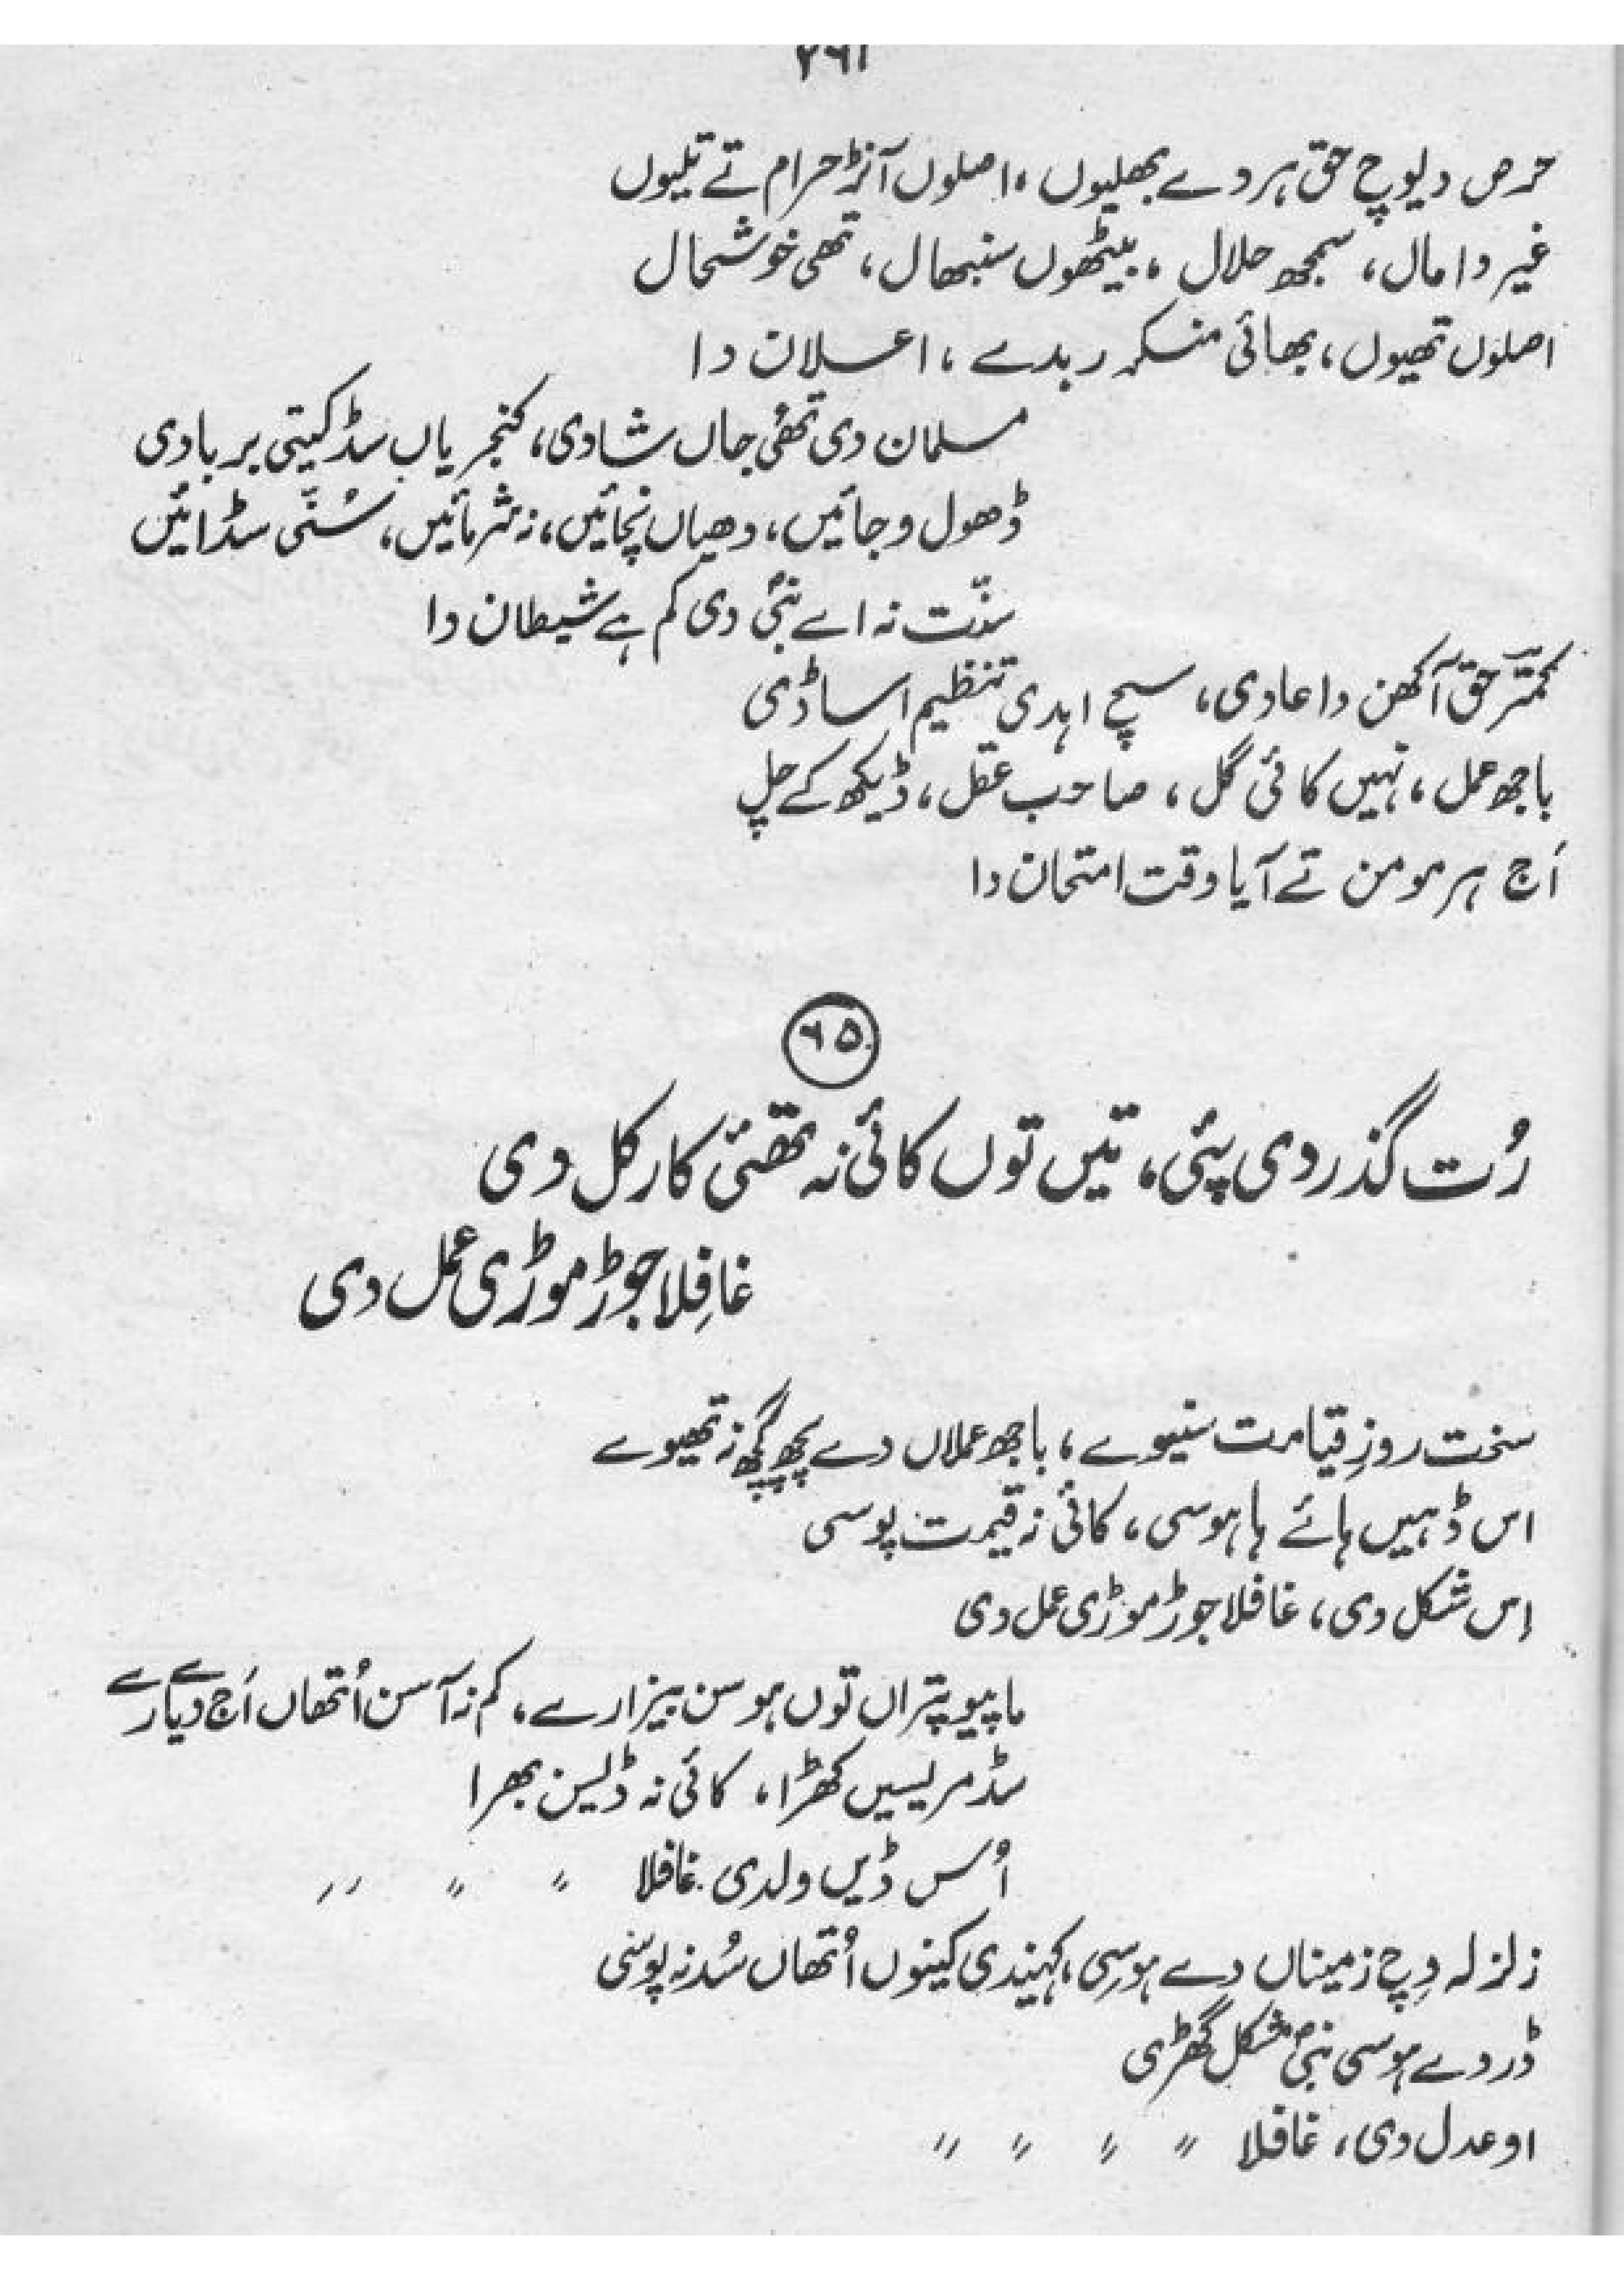 ۲۶۱
حرص دیوچ حق ہر دے بھلیوں، اصلوں آنڑ حرام تے تلیوں
غیر دا مال، سمجھ حلال، بیٹھوں سنبھال، تھی خوشحال
اصلوں تھیوں، بھائی منکر ربدے، اعلان دا
مسلمان دی تھئی جاں شادی، کنجریاں سڈ کیتی بربادی
ڈھول وجائیں، دھیاں نچائیں، نہ شرمائیں، سُنّی سڈائیں
سنّت نہ اے نبیؐ دی کم ہے شیطان دا
کمتر حق آکھن دا عادی، سچ اہدی تنظیم اساڈی
باجھ عمل، نہیں کائی گل، صاحب عقل، ڈیکھ کے چل
اَج ہر مومن تے آیا وقت امتحان دا
۶۵
رُت گذردی پئی، تیں توں کائی نہ تھئی کار کل دی
غافِلا جوڑ موڑی عمل دی
سخت روزِ قیامت سنیوے، باجھ عملاں دے پچھ گچھ نہ تھیوے
اس ڈہیں ہائے ہا ہوسی، کائی نہ قیمت پوسی
اِس شکل دی، غافلا جوڑ موڑی عمل دی
ما پیو پتراں توں ہوسن بیزارے، کم نہ آسن اُتھاں اَج دے یارے
سڈ مریسیں کھڑا، کائی نہ ڈلیسن بھرا
اُس ڈیں ولدی۔ غافلا ״ ״ ״
زلزلہ وِچ زمیناں دے ہوسِی، کہیندی کینوں اُتھاں سُد نہ پوسی
ڈر دے ہوسی نبیؐ مشکل گھڑی
او عدل دی، غافلا ״ ״ ״ ״